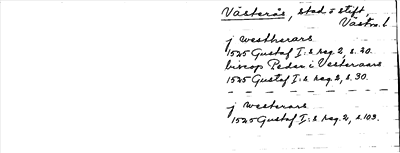 Västerås, stad o stift,
Västm. l
j westherars
1525 Gustaf I:s reg. 2, s. 20.
biscop Peder i Vesteraars
1525 Gustaf I:s reg. 2, s. 30.
j westerars
1525 Gustaf I:s reg. 2, s. 109.